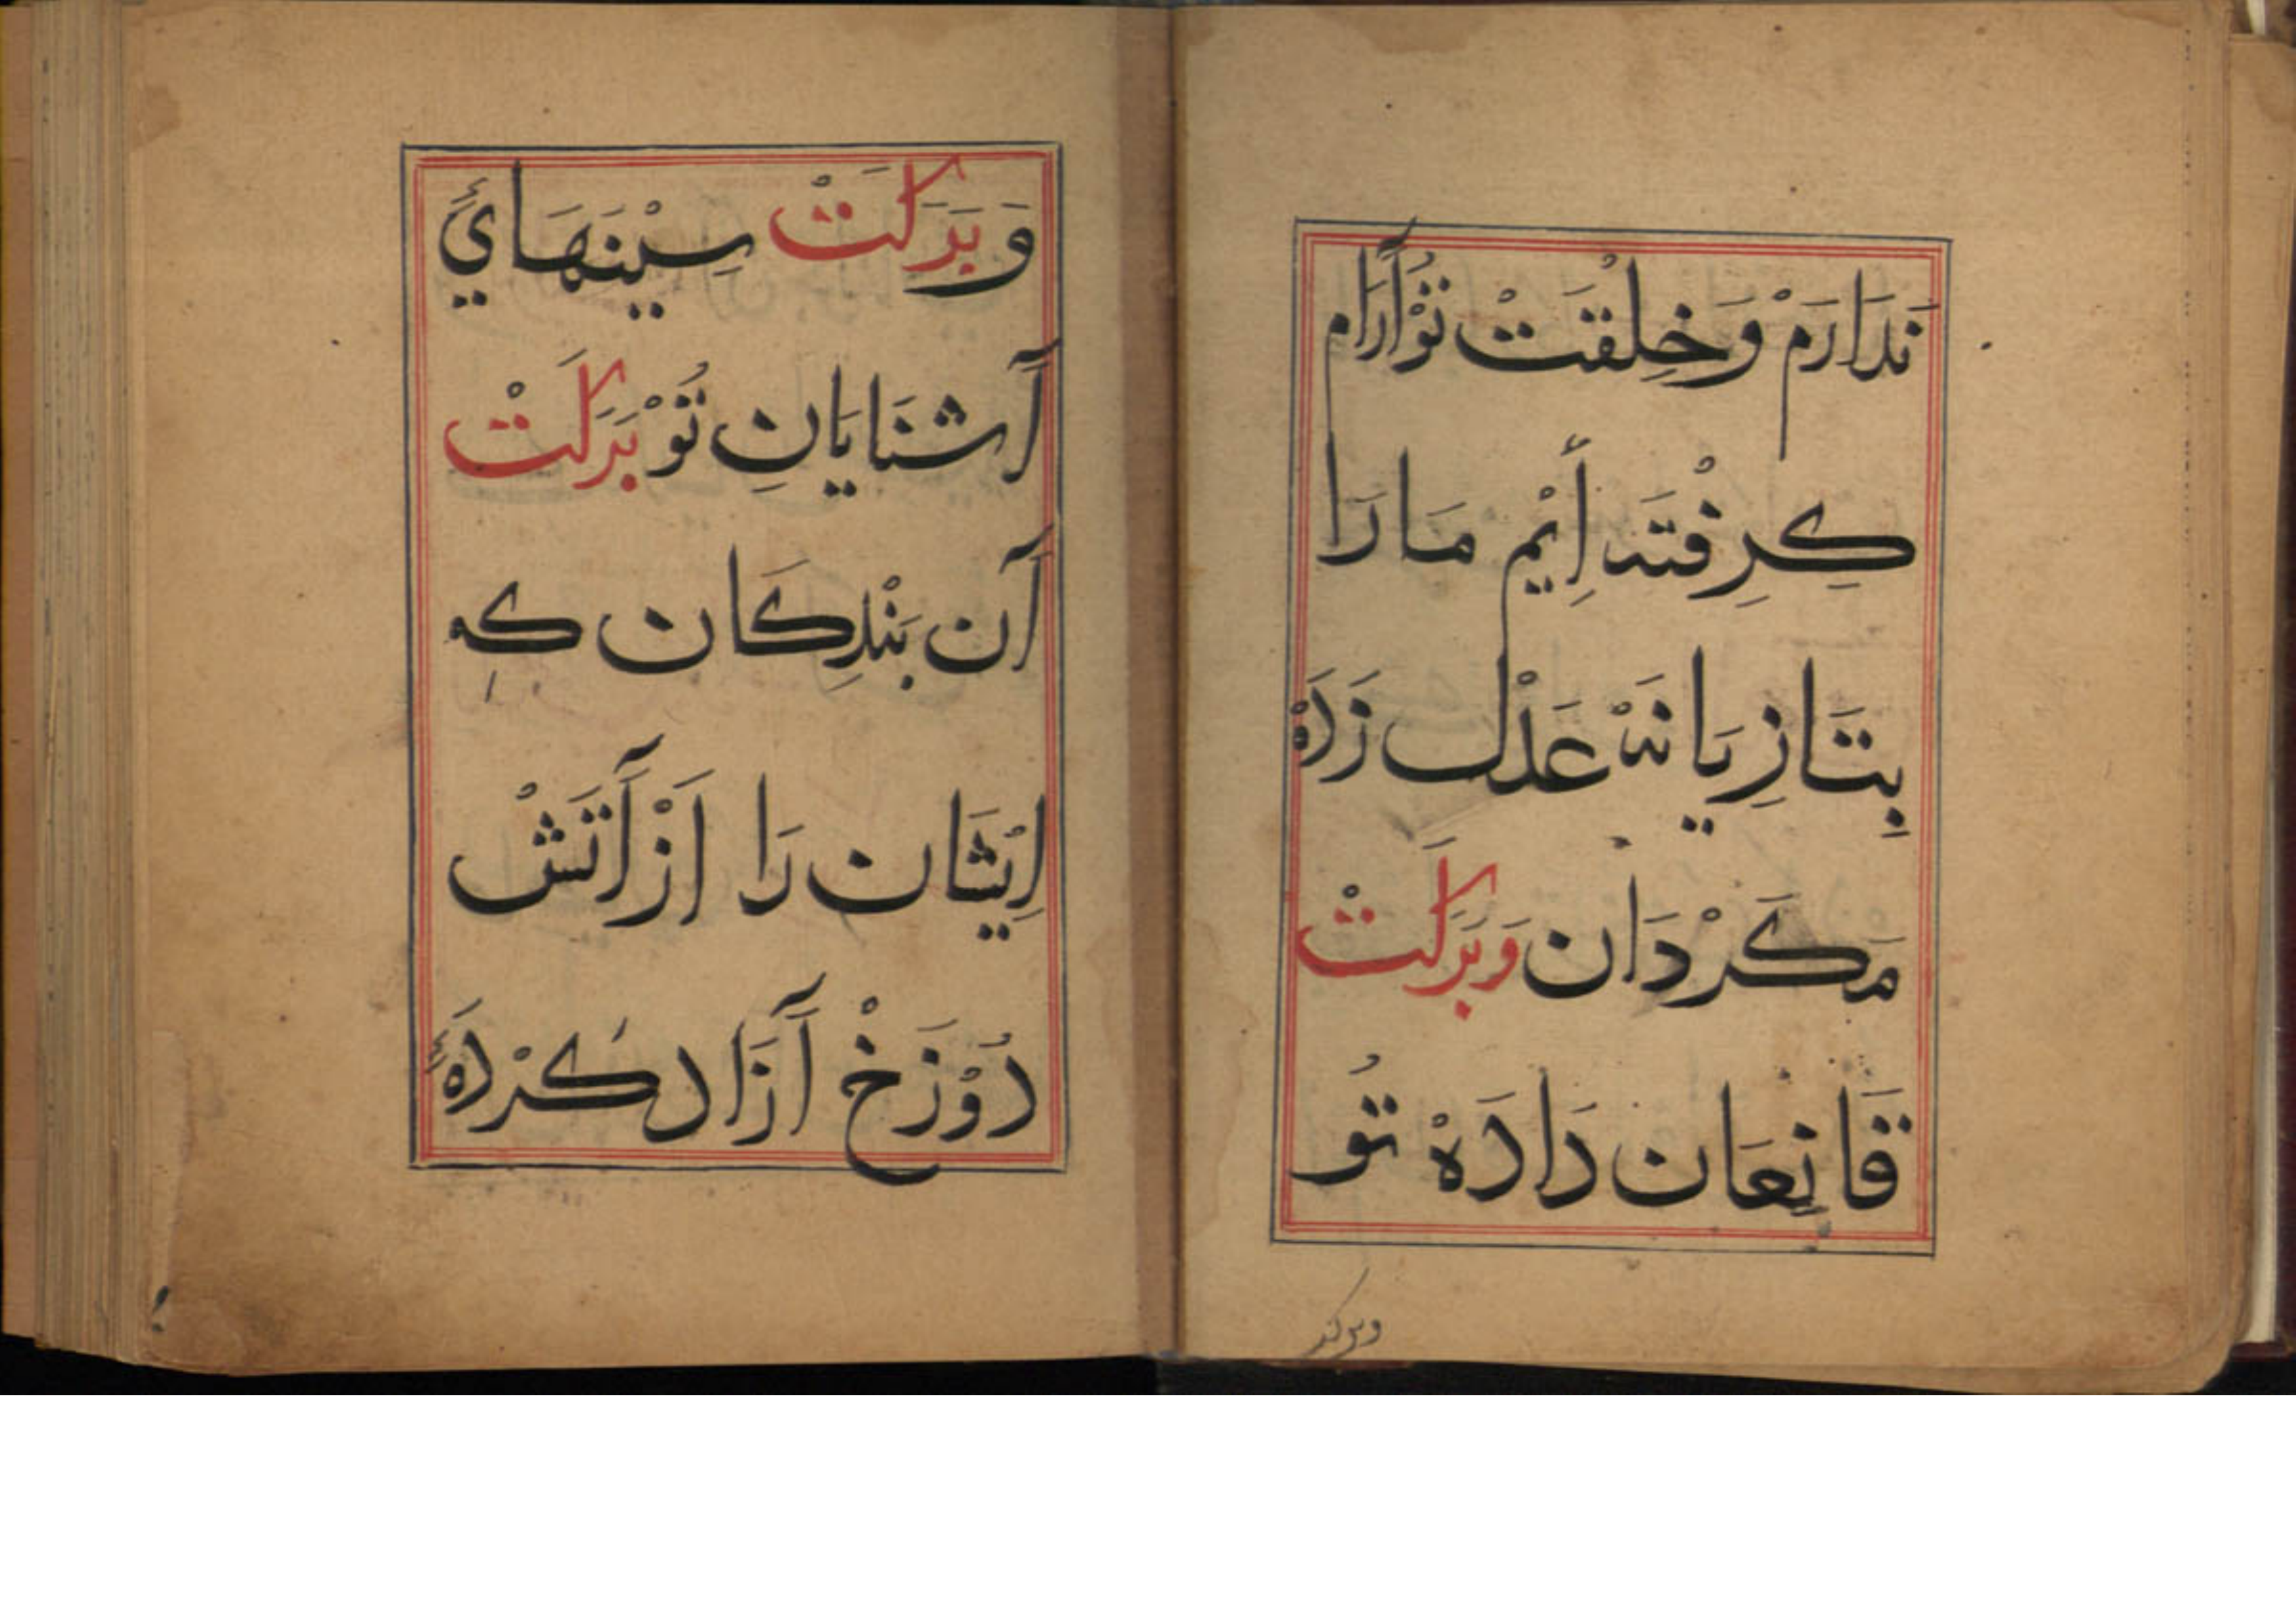 نَدَارَمْ وَخِلْقَتْ تُوْ آرَام
كِرِفْتَه اِيْم مَا رَا
بِتَازِيَانَهْ عَدْل زَدَهْ
مَكَرْدَان وَبَرَكَتْ
قَانِعَان دَادَهْ تُو
وبركت
وَ بَرَكَتْ سِيْنَهَائَ
آشْنَايَانِ تُوْ بَرَكَتْ
آن بَنْدِكَان كه
اِيْشَان رَا اَزْ آتَشْ
دُوْزَخْ آزَاد كَرْدَهٔ